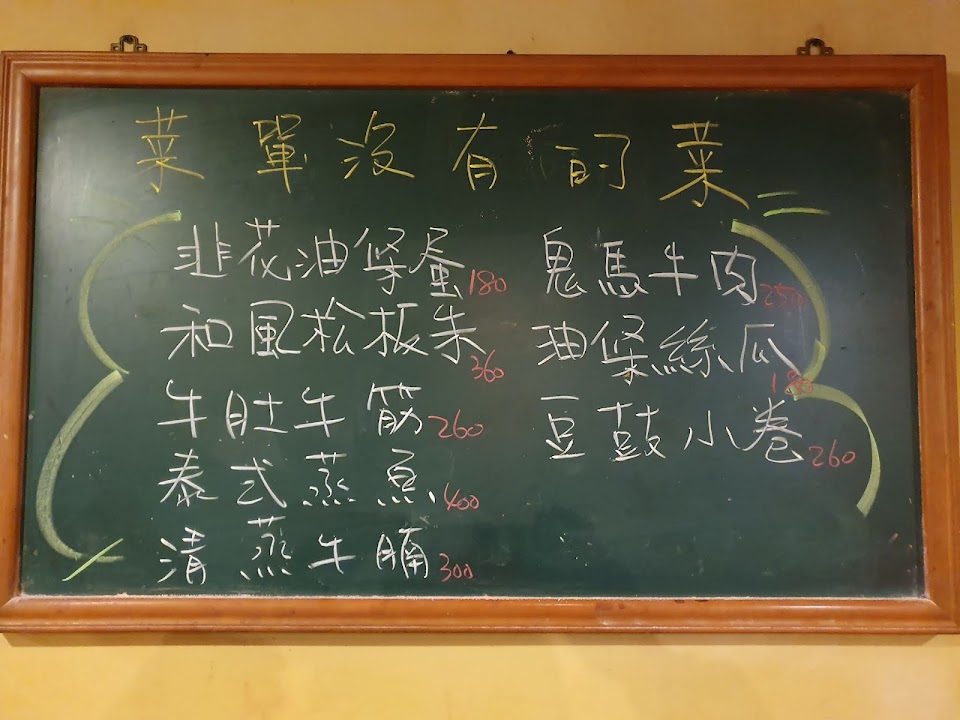 菜單沒有的菜
韭花油條蛋180
和風松板朱360
牛肚牛筋260
泰式蒸魚400
清蒸牛腩300
鬼馬牛肉250
油條絲瓜180
豆鼓小卷260